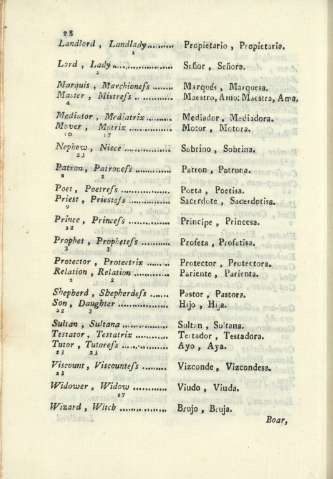 28
Landlord , Landlady.......... Propietario , Propietaria.
1
Lord , Lady .................. Señor , Señora.
2
Marquis , Marchioneſs ........ Marqués , Marquesa.
Master , Mistreſs .. ............ Maestro, Amo; Maestra, Ama.
4
Mediator , Mediatrix ......... Mediador , Mediadora.
Mover , Motrix ............... Motor , Motora.
10 17
Nephew , Niece ............... Sobrino , Sobrina.
23
Patron , Patroneſs ............ Patron , Patrona.
2 2
Poet , Poetreſs ............... Poeta , Poetisa.
Priest , Priesteſs ............... Sacerdote , Sacerdotisa.
9
Prince , Princeſs .............. Principe , Princesa.
22
Prophet , Propheteſs .......... Profeta , Profetisa.
3 3
Protector , Protectrix ........ Protector , Protectora.
Relation , Relation ............ Pariente , Parienta.
2 2
Shepherd , Shepherdeſs ...... Pastor , Pastora.
Son , Daughter ............... Hijo , Hija.
22 3
Sultan , Sultana .............. Sultan , Sultana.
Testator , Testatrix ............ Testador , Testadora.
Tutor , Tutoreſs ............... Ayo , Aya.
23 23
Viscount , Viscounteſs ......... Vizconde , Vizcondesa.
28
Widower , Widow ............ Viudo , Viuda.
17
Wizard , Witch ............... Brujo , Bruja.
Boar,